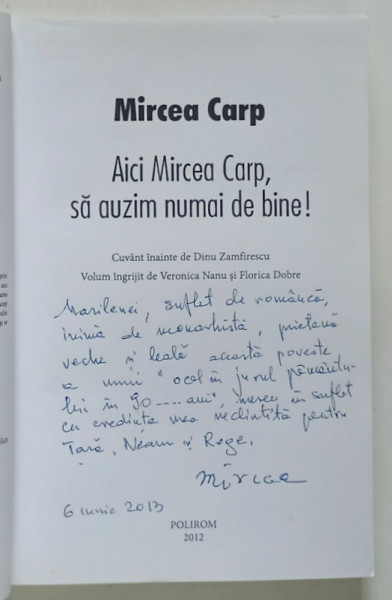 Mircea Carp
Aici Mircea Carp,
să auzim numai de bine!
Cuvânt înainte de Dinu Zamfirescu
Volum îngrijit de Veronica Nanu și Florica Dobre
Marilenei, suflet de româncă,
inimă de monarhistă, prietenă
veche și leală această poveste
a unui "ocol în jurul pământu-
lui în 90....ani" mereu în suflet
cu credința mea neclintită pentru
Țară, Neam și Rege.
Mircea
6 iunie 2013
POLIROM
2012